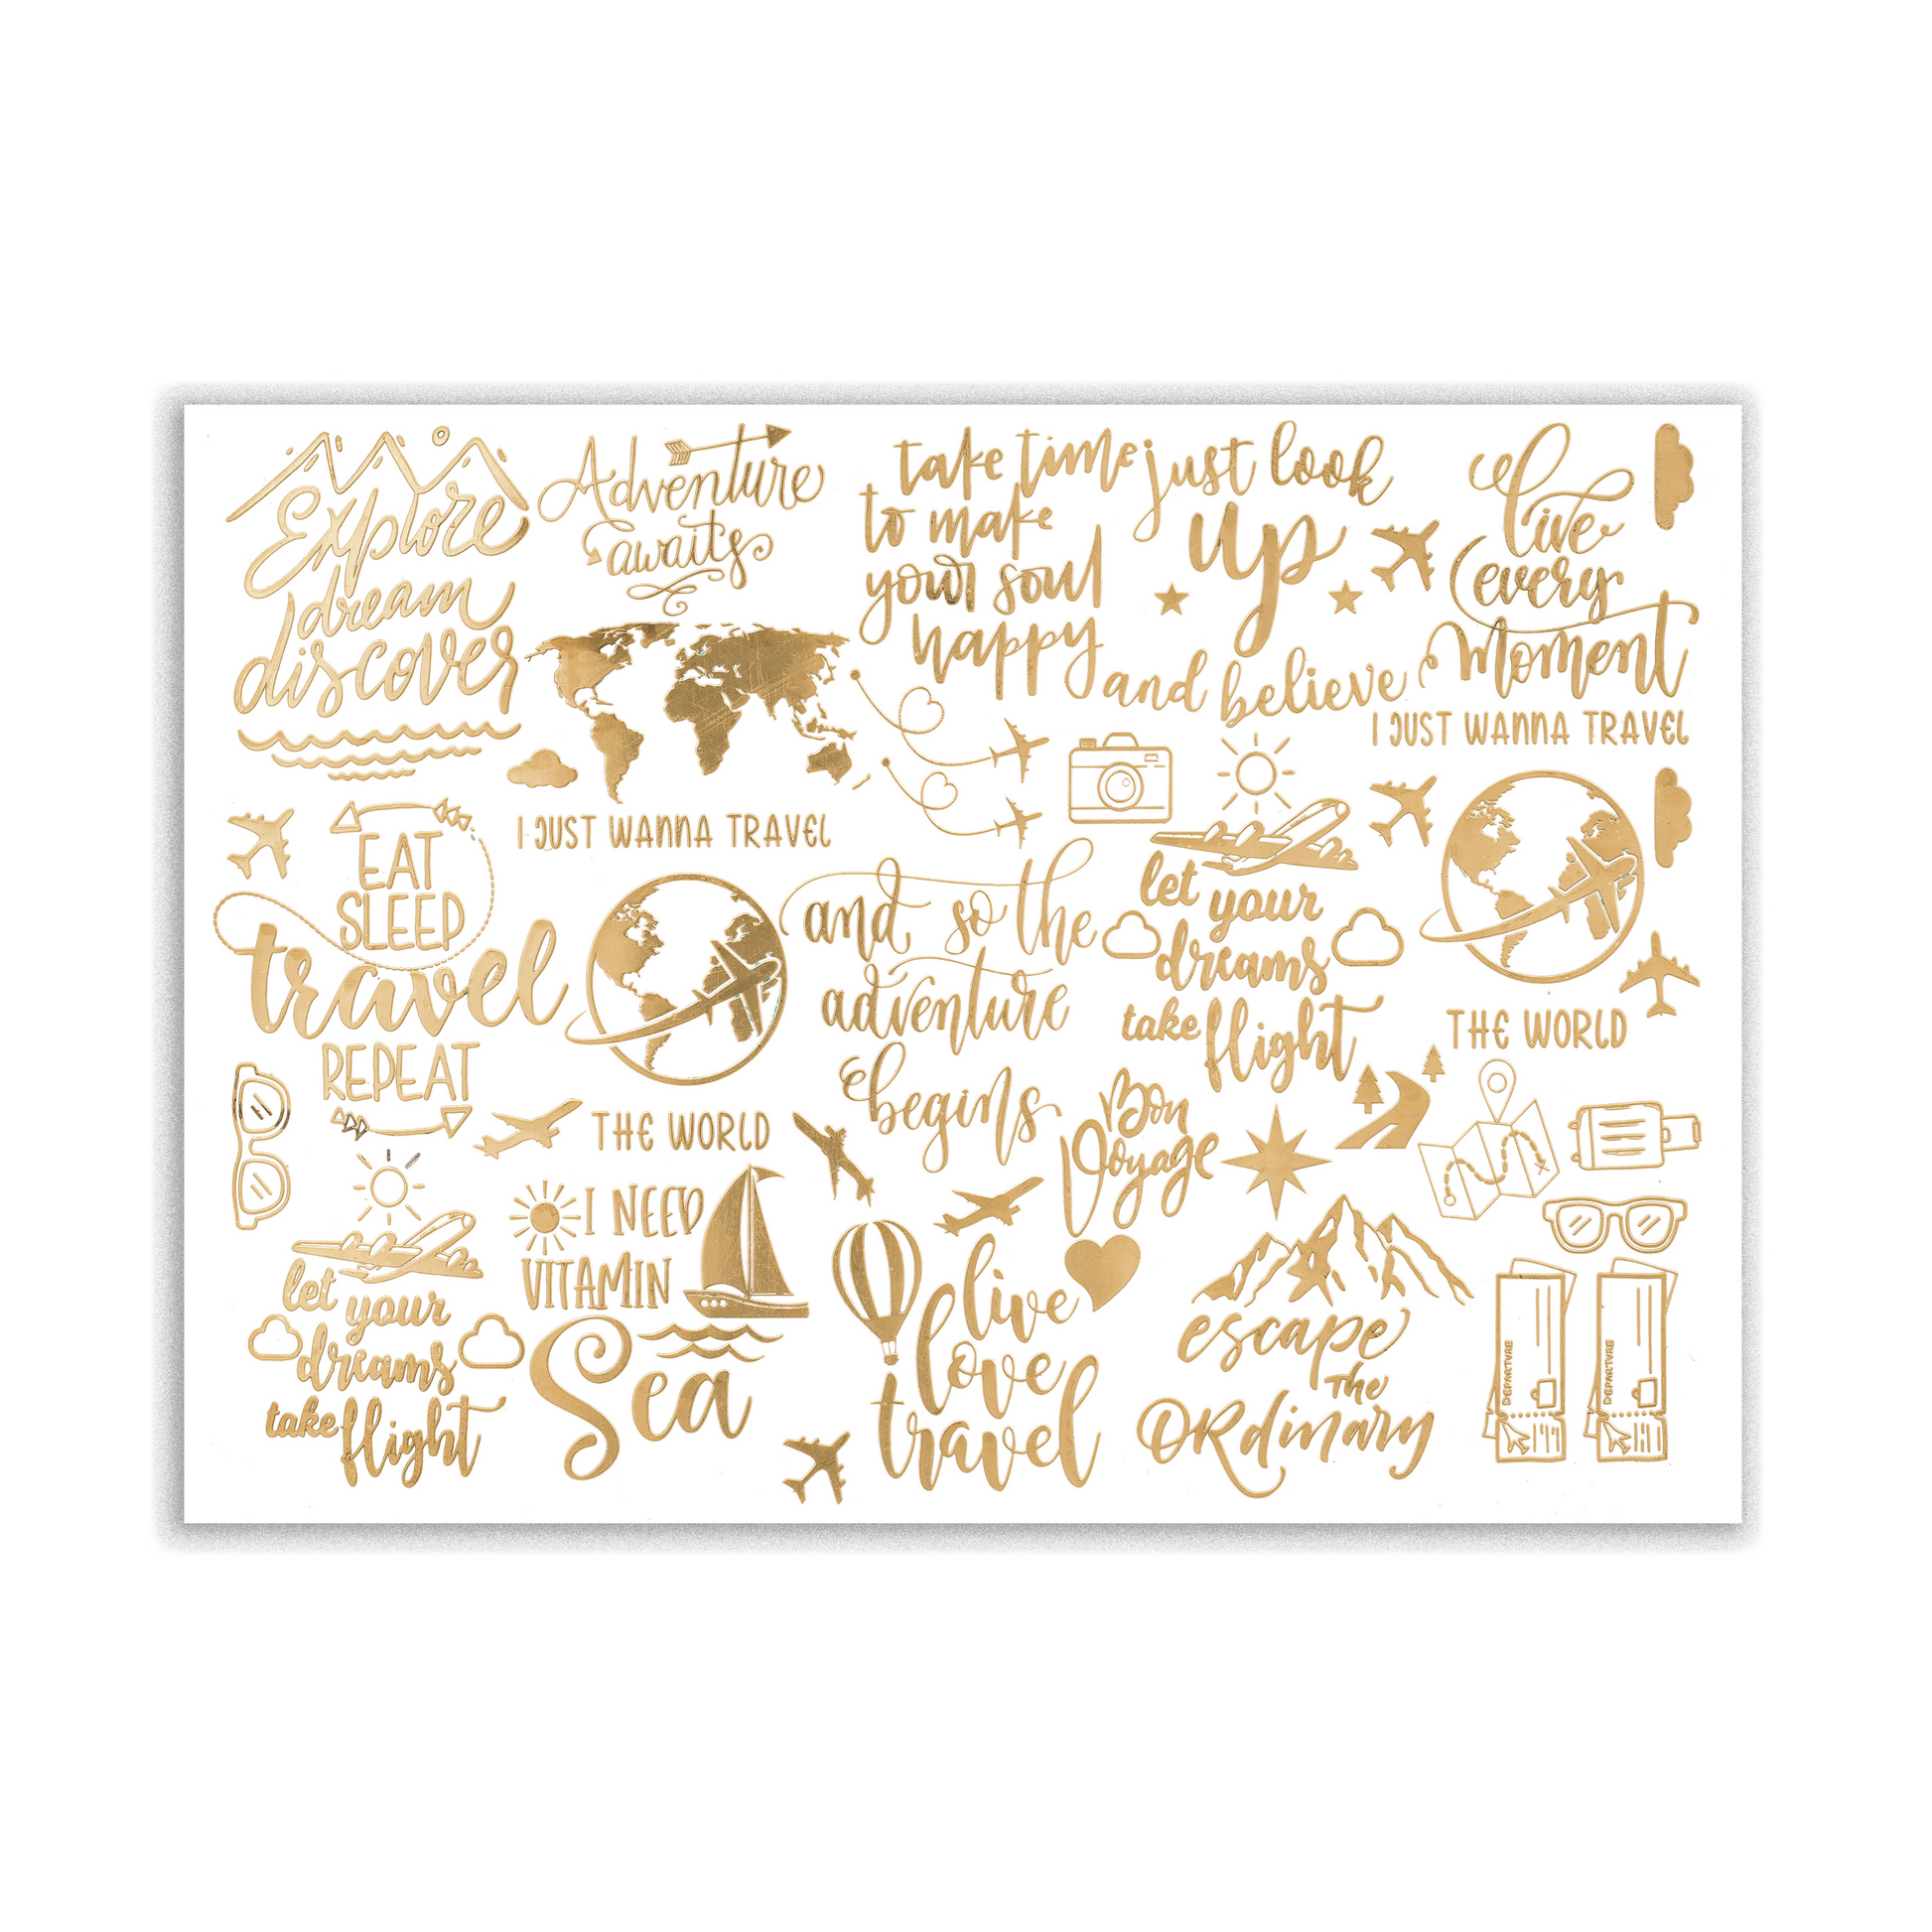 Explore
dream
discover
Adventure
awaits
take time
to make
your soul
happy
just look
up
and believe
live
every
moment
I JUST WANNA TRAVEL
THE WORLD
EAT
SLEEP
travel
REPEAT
I JUST WANNA TRAVEL
THE WORLD
and so the
adventure
begins
let your
dreams
take flight
Bon
Voyage
let your
dreams
take flight
I NEED
VITAMIN
Sea
live
love
travel
escape
The
ORdinary
DEPARTURE
DEPARTURE